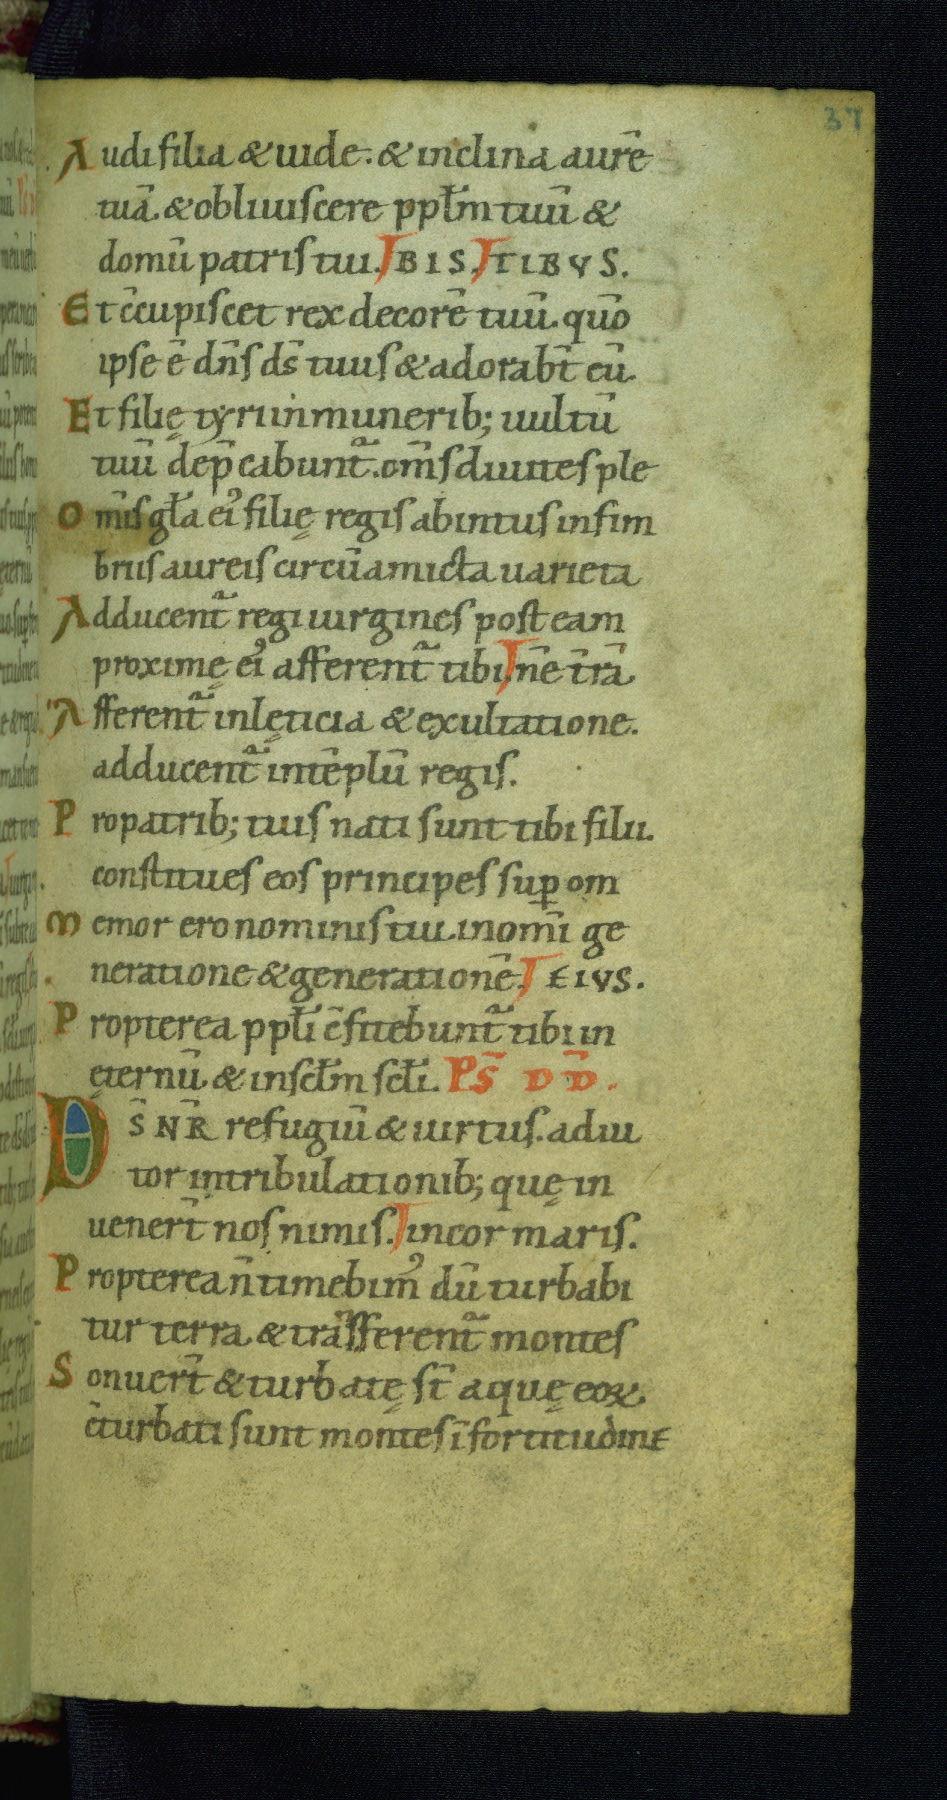 37
Audi filia & uide. & inclina aurē
tuā. & obliuiscere ppłm tuū &
domū patris tui. BIS. TIBVS.
Et c̄cupiscet rex decorē tuū. qūo
ipse ē dn̄s ds̄ tuus & adorab̄t eū.
Et filię tyri in munerib; uultū
tuū dep̄cabunt᷑. om̄s diuites ple
Om̄is gła ei᾽ filię regis ab intus in fim
briis aureis circū amicta uarieta
Adducent᷑ regi uirgines post eam
proximę ei᾽ afferent᷑ tibi. n̄e t̄rā.
Afferent᷑ in lęticia & exultatione.
adducent᷑ in tēplū regis.
Pro patrib; tuis nati sunt tibi filii.
constitues eos principes sup̄ om
Memor ero nominis tui. in om̄i ge
neratione & generationē. EIVS.
Propterea ppłi c̄fitebunt᷑ tibi in
ęternū. & in scłm scłi. PS̄ DD̄.
DS̄ NR̄ refugiū & uirtus. adiu
tor in tribulationib; quę in
uener̄t nos nimis. in cor maris.
Propterea n̄ timebim᾽ dū turbabi
tur terra & trāsferent᷑ montes
Sonuer̄t & turbatę st̄ aquę eoꝝ.
c̄turbati sunt montes ī fortitudine